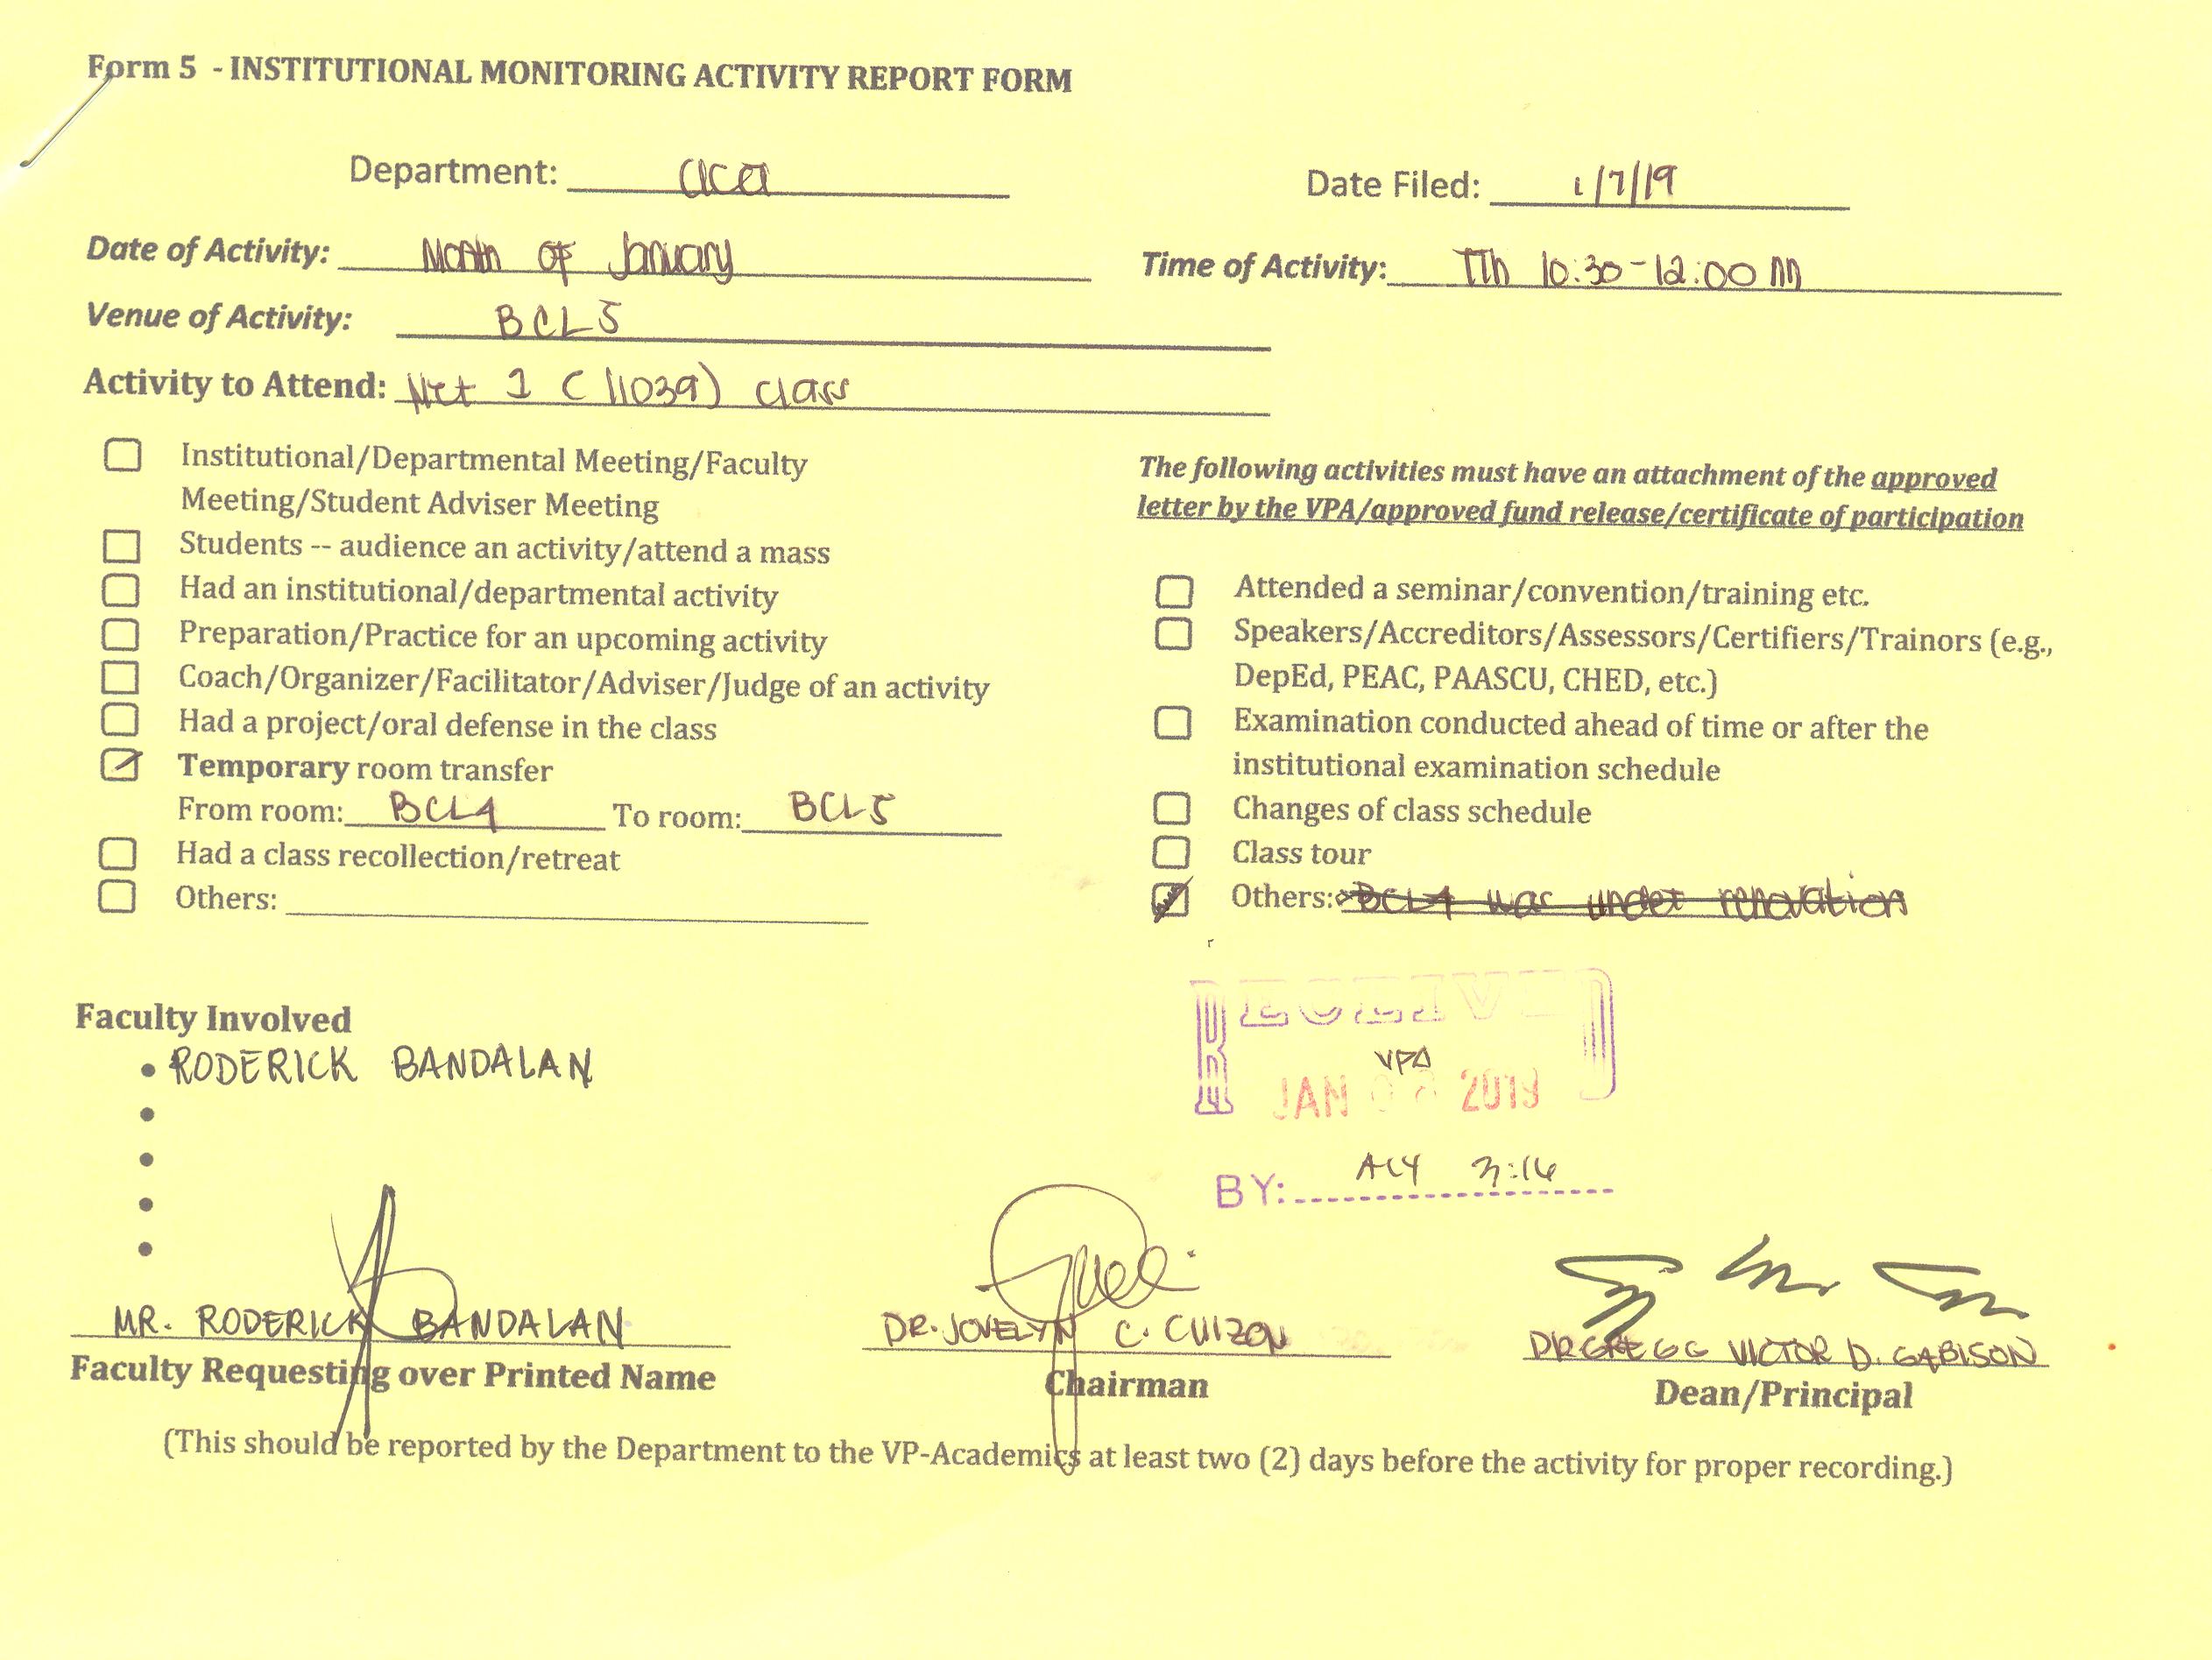 Form 5 - INSTITUTIONAL MONITORING ACTIVITY REPORT FORM
Department: CICCT Date Filed: 1/7/19
Date of Activity: Month of January Time of Activity: TTh 10:30-12:00 NN
Venue of Activity: BCL5
Activity to Attend: Net 1 (11039) class
Institutional/Departmental Meeting/Faculty
Meeting/Student Adviser Meeting
Students -- audience an activity/attend a mass
Had an institutional/departmental activity
Preparation/Practice for an upcoming activity
Coach/Organizer/Facilitator/Adviser/Judge of an activity
Had a project/oral defense in the class
Temporary room transfer
From room: BCL4 To room: BCL5
Had a class recollection/retreat
Others:
The following activities must have an attachment of the approved
letter by the VPA/approved fund release/certificate of participation
Attended a seminar/convention/training etc.
Speakers/Accreditors/Assessors/Certifiers/Trainors (e.g.,
DepEd, PEAC, PAASCU, CHED, etc.)
Examination conducted ahead of time or after the
institutional examination schedule
Changes of class schedule
Class tour
Others: BCL4 was under renovation
Faculty Involved
• RODERICK BANDALAN
RECEIVED
VPA
JAN 2019
BY: ACY 3:16
MR. RODERICK BANDALAN
Faculty Requesting over Printed Name
DR. JOVELYN C. CUIZON
Chairman
DR GREGG VICTOR D. GABISON
Dean/Principal
(This should be reported by the Department to the VP-Academics at least two (2) days before the activity for proper recording.)